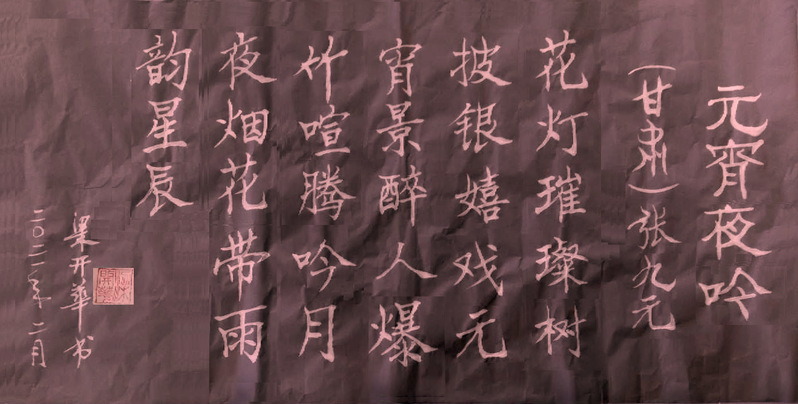 元宵夜吟
（甘肃）张九元
花灯璀璨树
披银嬉戏元
宵景醉人爆
竹喧腾吟月
夜烟花带雨
韵星辰
梁开华书
二〇二二年二月